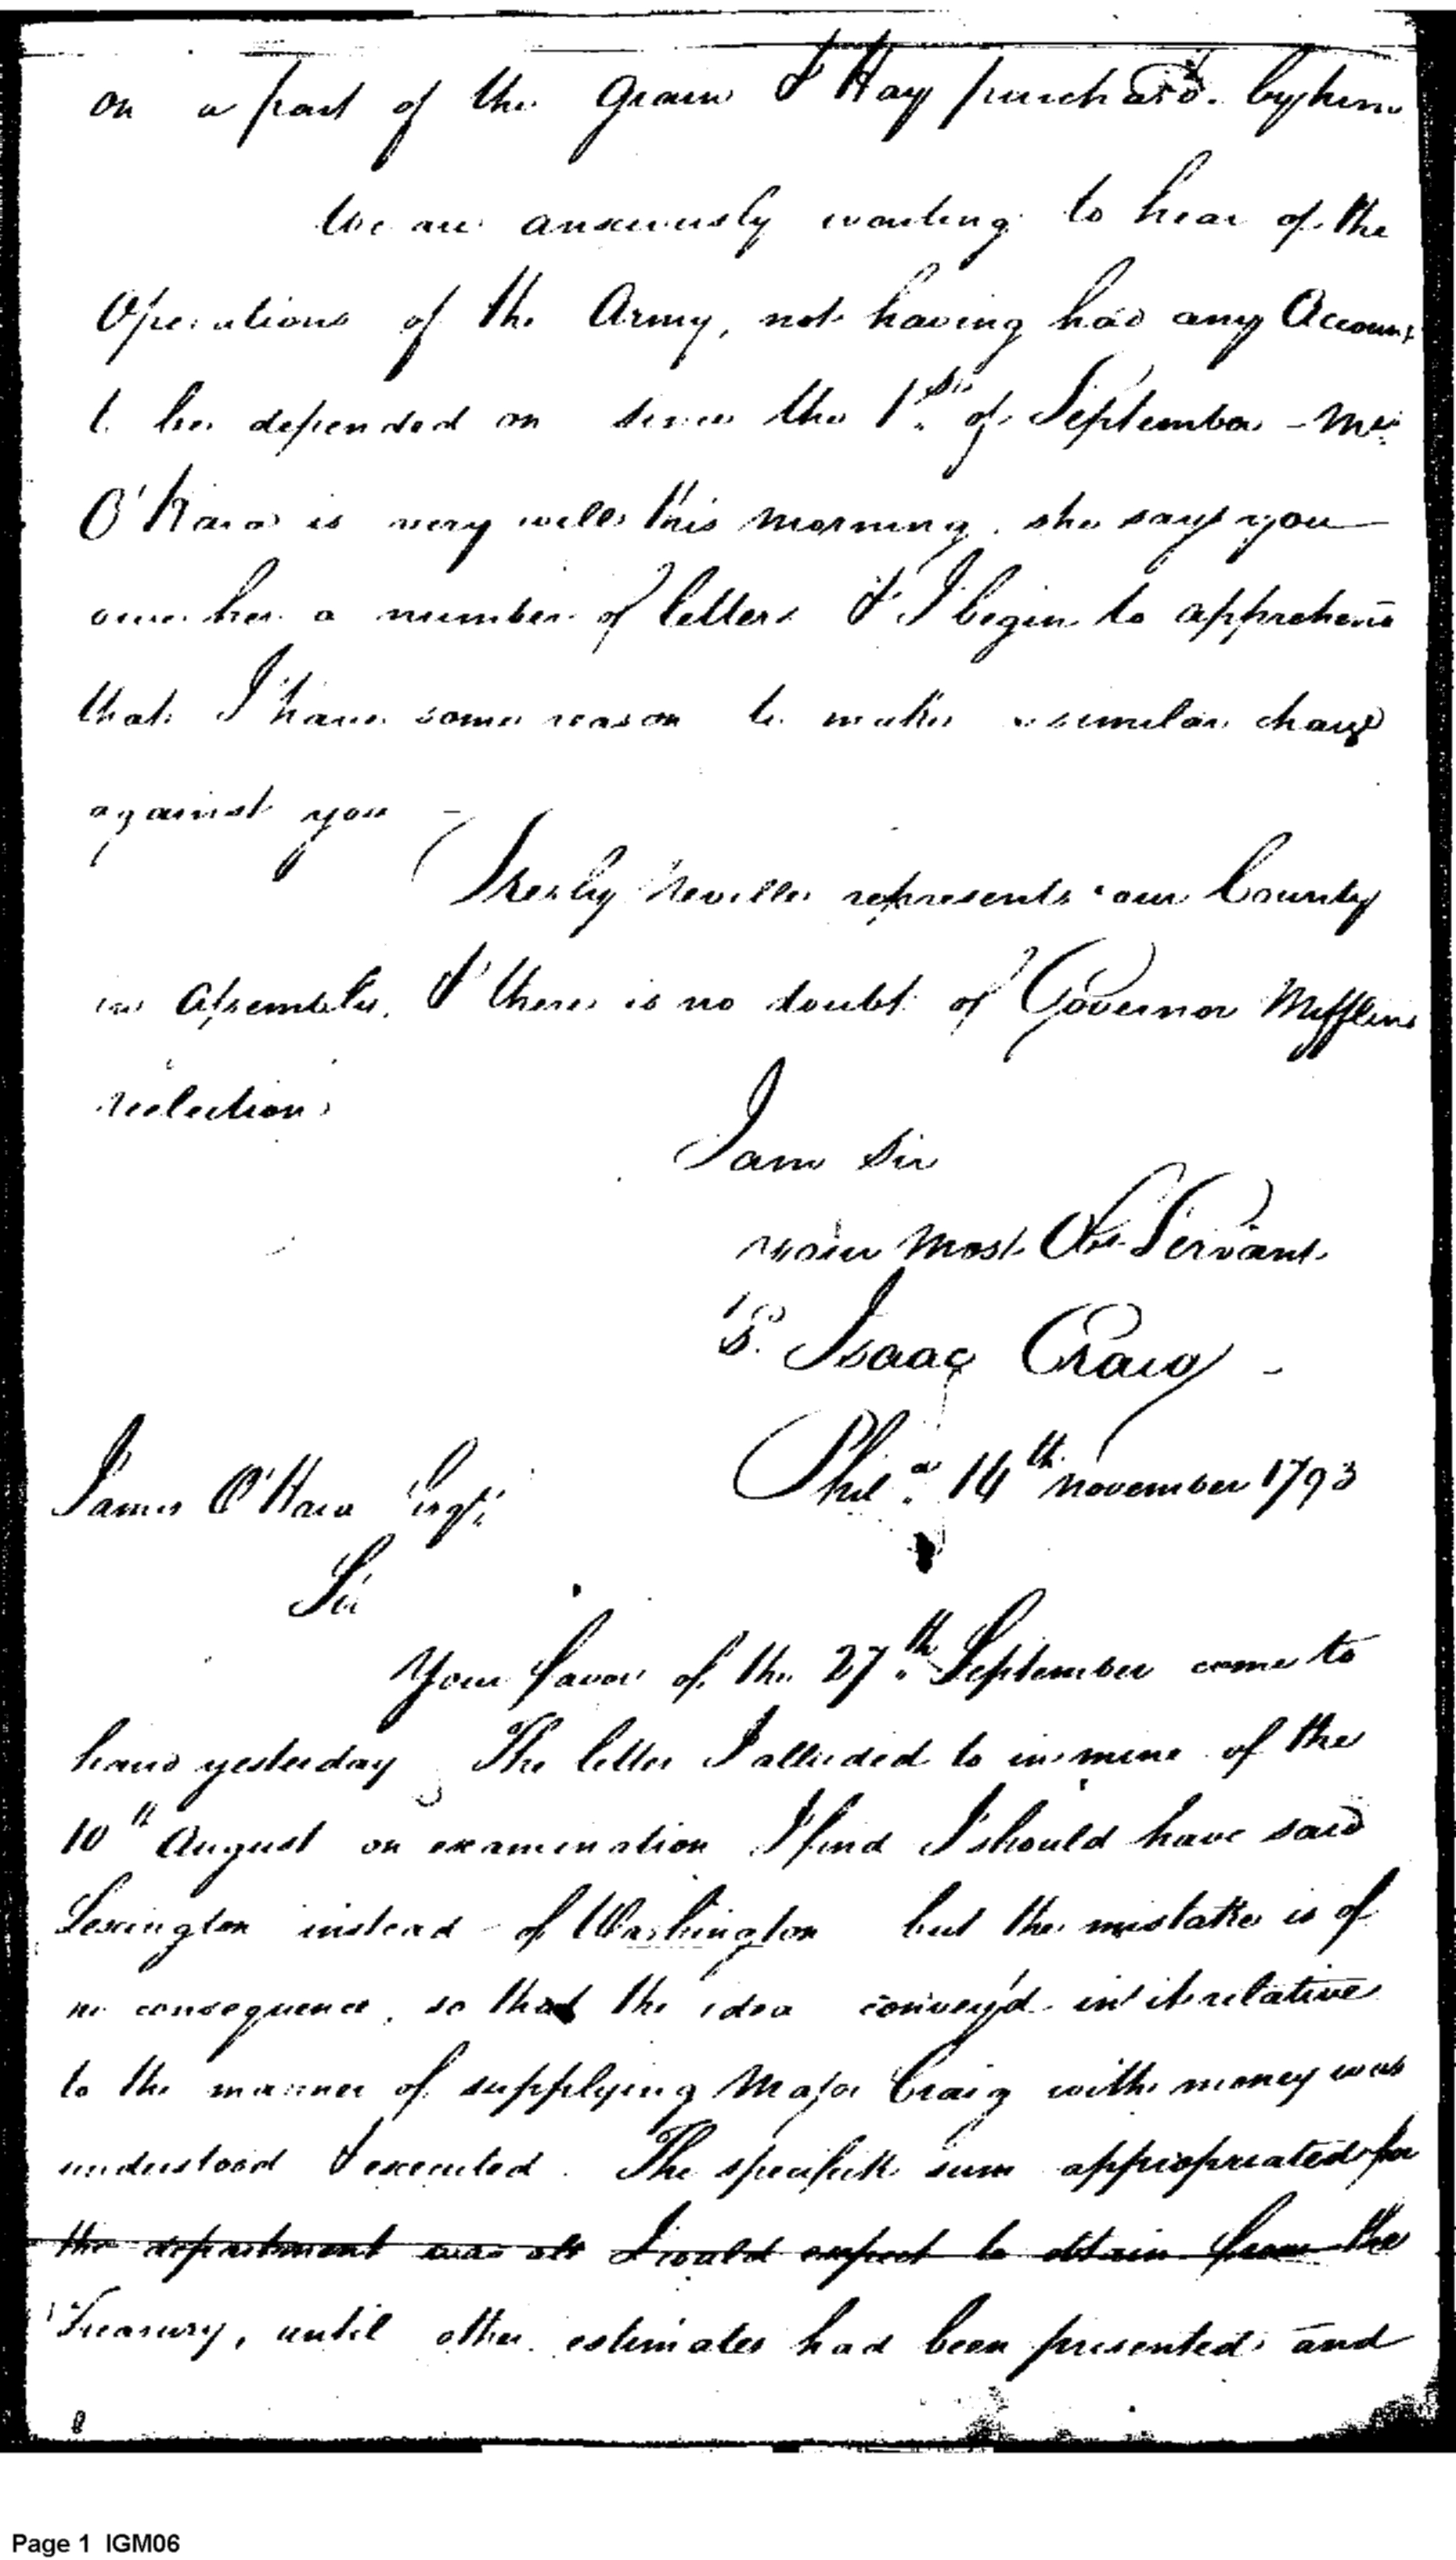 on a part of the Grain & Hay purchasd. by him
We are anxiously waiting to hear of the
Operations of the Army, not having had any Account
to be depended on since the 1st. of September - Mrs.
O'Hara is very well this morning, she says you
owe her a number of letters & I begin to apprehend
that I have some reason to make a similar charge
against you -
Presley Neville represents our County
in Assembly, & there is no doubt of Governor Mifflins
reelection
I am Sir
your most Obt. Servant
Isaac Craig -
Phila. 14th November 1793
James O'Hara Esqr.
Sir
Your favor of the 27th. September came to
hand yesterday The letter I alluded to in mine of the
10th August on examination I find I should have said
Lexington instead of Washington but the mistake is of
no consequence, so that the idea convey'd in it relative
to the manner of supplying Major Craig with money was
understood & executed. The specifick sum appropriated for
the department was all I could expect to obtain from the
Treasury, until other estimates had been presented and
Page 1 IGM06